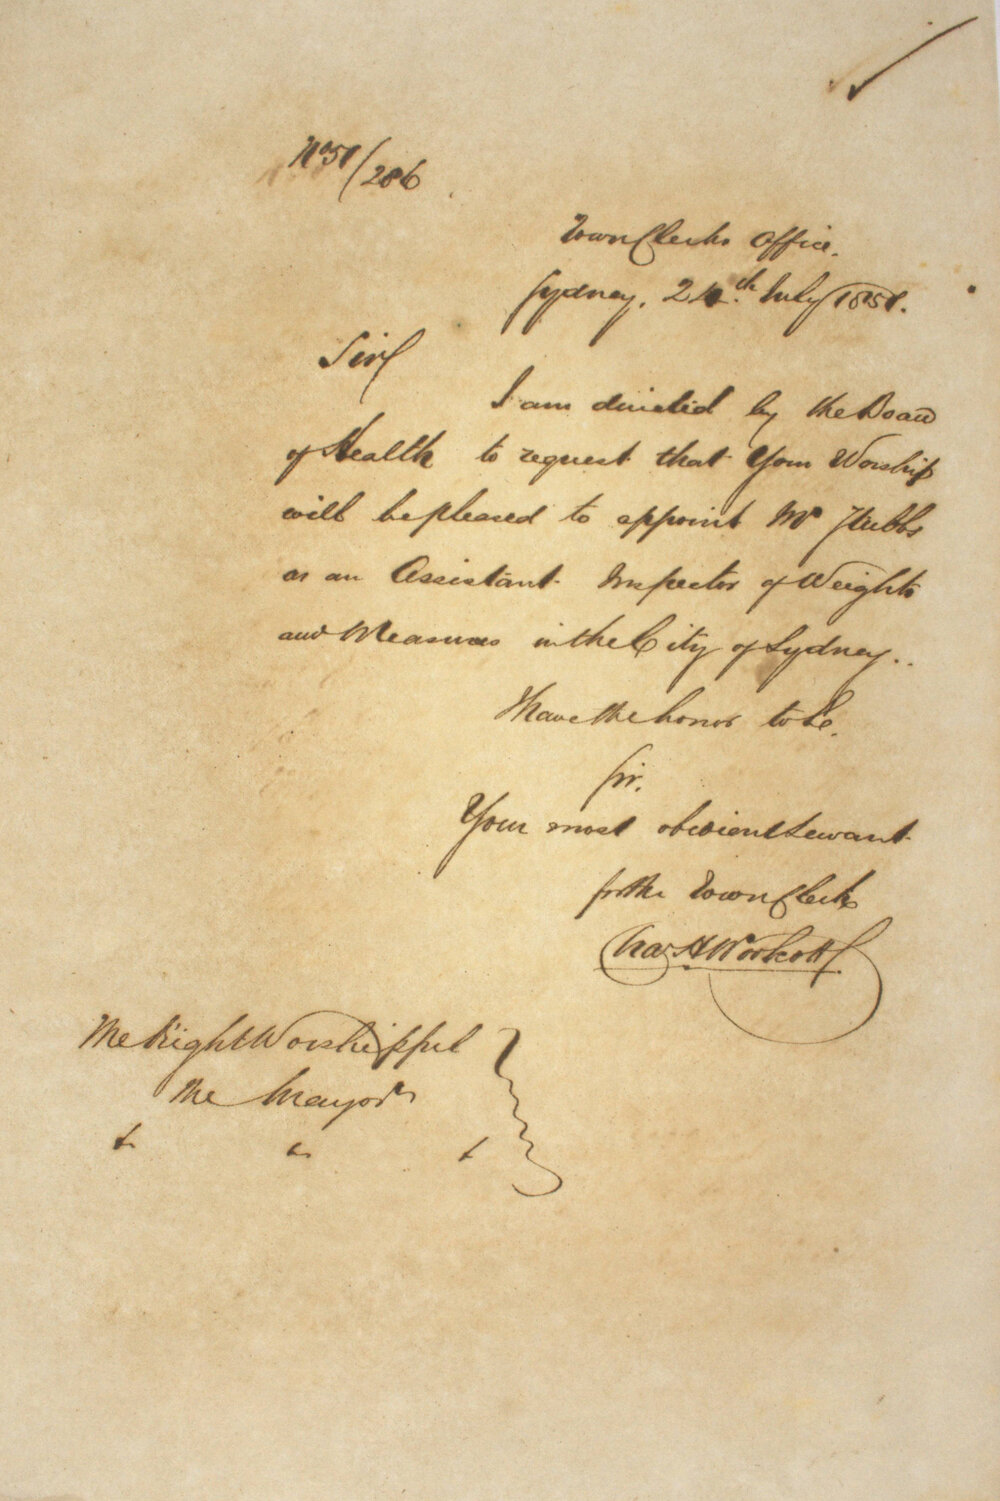 No 51/286
Town Clerks Office.
Sydney. 24th July 1851.
Sir
I am directed by the Board
of Health to request that Your Worship
will be pleased to appoint Mr Stubbs
as an Assistant Inspector of Weights
and Measures in the City of Sydney..
I have the honor to be.
Sir.
Your most obedient Servant
for the Town Clerk
Chas H Woolcott
The Right Worshipful
The Mayor